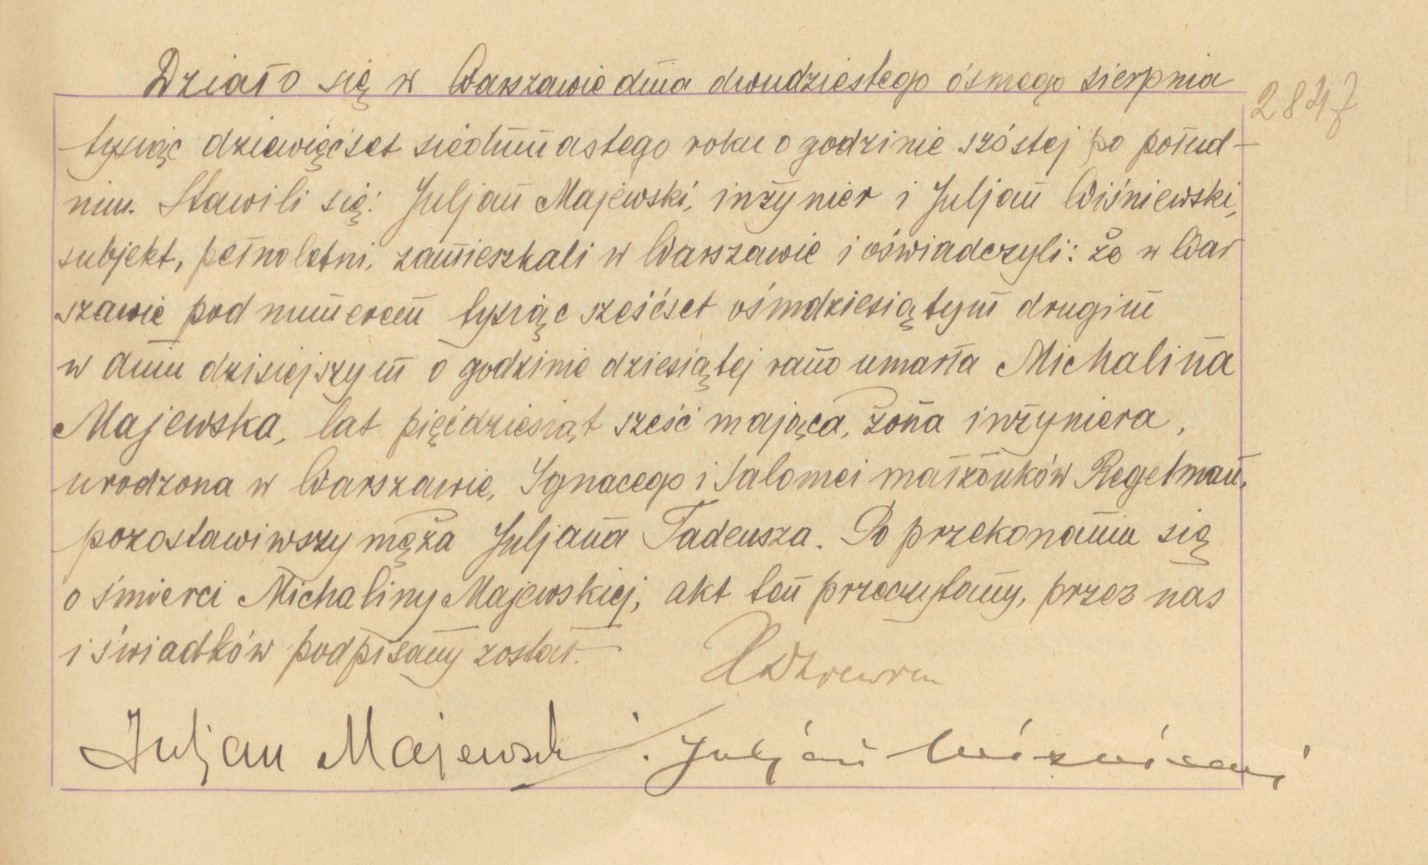 Działo się w Warszawie dnia dwudziestego ósmego sierpnia
tysiąc dziewięćset siedmnastego roku o godzinie szóstej po połud-
niu. Stawili się: Juljan Majewski, inżynier i Juljan Wiśniewski,
subjekt, pełnoletni, zamieszkali w Warszawie i oświadczyli: że w War
szawie pod numerem tysiąc sześćset ośmdziesiątym drugim
w dniu dzisiejszym o godzinie dziesiątej rano umarła Michalina
Majewska, lat pięćdziesiąt sześć mająca, żona inżyniera,
urodzona w Warszawie, Ignacego i Salomei małżonków Regelman,
pozostawiwszy męża Juljana Tadeusza. Po przekonaniu się
o śmierci Michaliny Majewskiej, akt ten przeczytany, przez nas
i świadków podpisany został.
Juljan Majewski. Juljan Wiśniewski